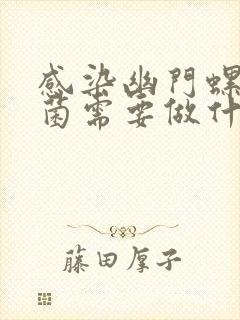 感染幽門螺
菌需要做什
藤田厚子